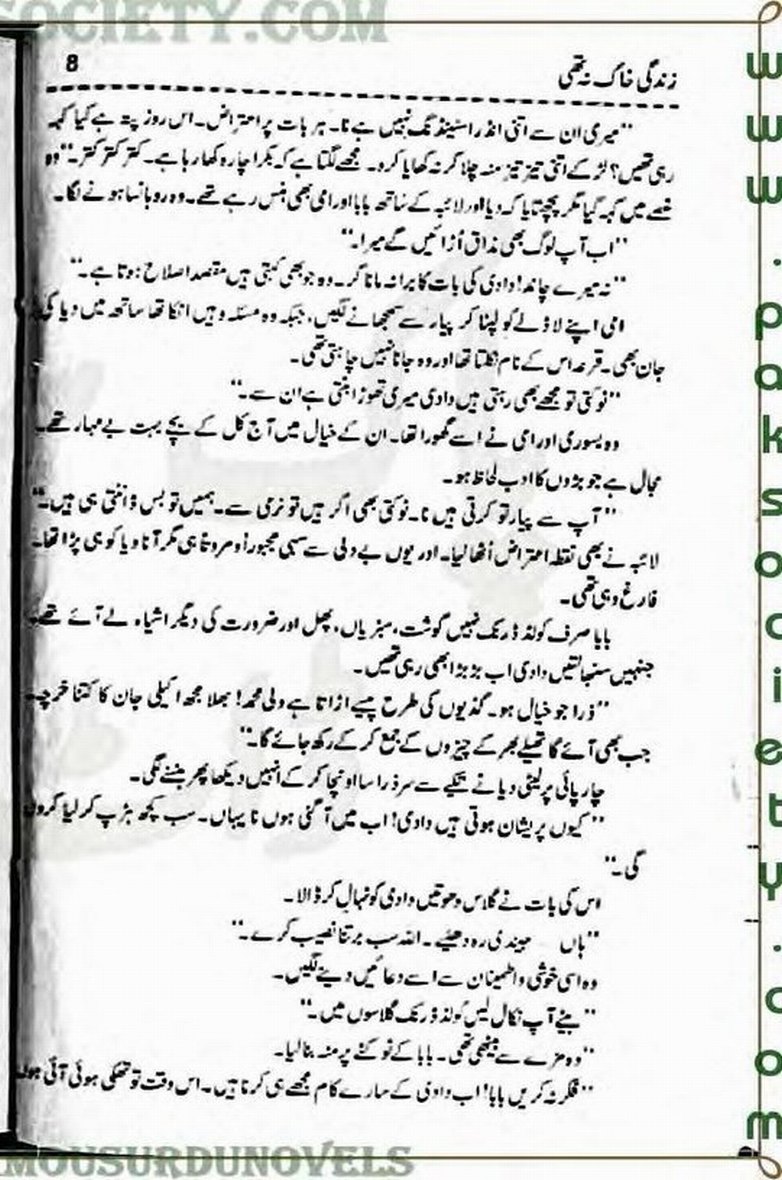 SOCIETY.COM
زندگی خاک نہ تھی
8
"میری ان سے اتنی انڈراسٹینڈنگ نہیں ہے نا۔ ہر بات پر اعتراض۔ اس روز پتہ ہے کیا کہہ
رہی تھیں؟ لڑکے اتنی تیز تیز منہ چلا کر نہ کھایا کرو۔ مجھے لگتا ہے کہ بکرا چارہ کھا رہا ہے۔ کتر کتر کتر۔" وہ
غصے میں کہہ گیا مگر پچھتایا کہ دیا اور لائبہ کے ساتھ بابا اور امی بھی ہنس رہے تھے۔ وہ روہانسا ہونے لگا۔
"اب آپ لوگ بھی مذاق اُڑائیں گے میرا۔"
"نہ میرے چاند! دادی کی بات کا برا نہ مانا کر۔ وہ جو بھی کہتی ہیں مقصد اصلاح ہوتا ہے۔"
امی اپنے لاڈلے کو لپٹا کر پیار سے سمجھانے لگیں، جبکہ وہ مسئلہ وہیں اٹکا تھا ساتھ میں دیا کی
جان بھی۔ قرعہ اس کے نام نکلتا تھا اور وہ جانا نہیں چاہتی تھی۔
"ٹوکتی تو مجھے بھی رہتی ہیں دادی میری تھوڑا بنتی ہے ان سے۔"
وہ بسوری اور امی نے اسے گھورا تھا۔ ان کے خیال میں آج کل کے بچے بہت بے مہار تھے۔
مجال ہے جو بڑوں کا ادب لحاظ ہو۔
"آپ سے پیار تو کرتی ہیں نا۔ ٹوکتی بھی اگر ہیں تو نرمی سے۔ ہمیں تو بس ڈانٹتی ہی ہیں۔"
لائبہ نے بھی نقطہ اعتراض اُٹھا لیا۔ اور یوں بے دلی سے سہی مجبوراً و مروتاً ہی مگر آنا دیا کو ہی پڑا تھا۔
فارغ وہی تھی۔
بابا صرف کولڈ ڈرنک نہیں گوشت، سبزیاں، پھل اور ضرورت کی دیگر اشیاء لے آئے تھے۔
جنہیں سنبھالتیں دادی اب بڑبڑا بھی رہی تھیں۔
"ذرا جو خیال ہو۔ گڈیوں کی طرح پیسے اڑاتا ہے ولی محمد! بھلا مجھ اکیلی جان کا کتنا خرچہ۔
جب بھی آئے گا تھیلے بھر کے چیزوں کے جمع کر کے رکھ جائے گا۔"
چارپائی پر لیٹی دیا نے تکیے سے سر ذرا سا اونچا کر کے انہیں دیکھا پھر ہنسنے لگی۔
"کیوں پریشان ہوتی ہیں دادی! اب میں آ گئی ہوں نا یہاں۔ سب کچھ ہڑپ کر لیا کروں
گی۔"
اس کی بات نے گلاس دھوتیں دادی کو نہال کر ڈالا۔
"ہاں جیندی رہ دھیئے۔ اللہ سب برتنا نصیب کرے۔"
وہ اسی خوشی و اطمینان سے اسے دعائیں دینے لگیں۔
"بیٹے آپ نکال لیں کولڈ ڈرنک گلاسوں میں۔"
"وہ مزے سے بیٹھی تھی۔ بابا کے ٹوکنے پر منہ بنا لیا۔
"فکر نہ کریں بابا! اب دادی کے سارے کام مجھے ہی کرنا ہیں۔ اس وقت تو تھکی ہوئی آئی ہوں
www.paksociety.com
MOUSURDUNOVELS